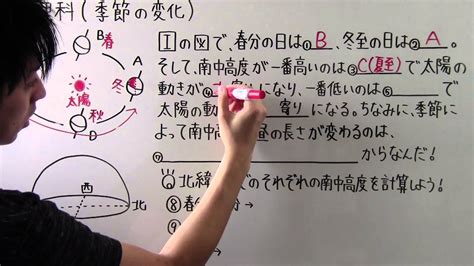 理科(季節の変化)
春
B
A
冬
太陽
秋
D
西
北
Iの図で、春分の日は①B、冬至の日は②A。
そして、南中高度が一番高いのは③C(夏至)で太陽の
動きが④になり、一番低いのは⑤で
太陽の動 寄りになる。ちなみに、季節に
よって南中高度 昼の長さが変わるのは、
⑦からなんだ!
北緯 でのそれぞれの南中高度を計算しよう!
⑧春分 分→
⑨ →